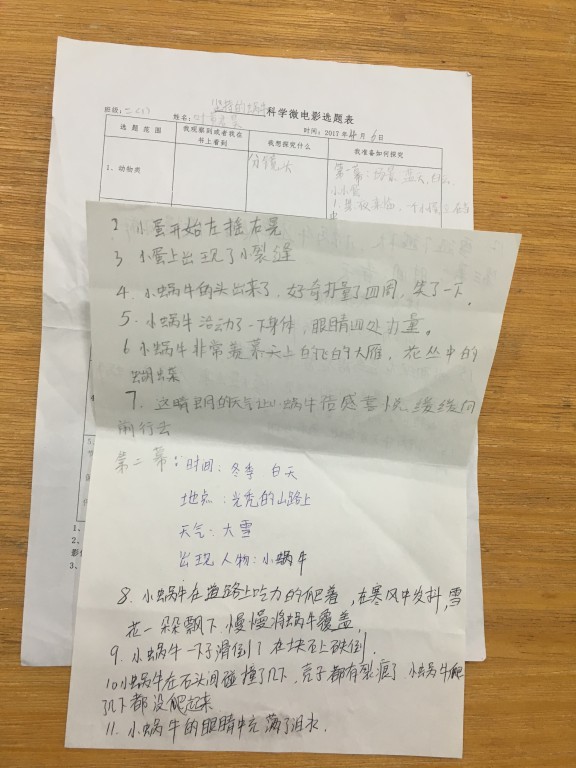 坚持的蜗牛科学微电影选题表
班级：二(1) 姓名： 时间：2017年4月6日
选题范围 我观察到或者我在书上看到 我想探究什么 我准备如何探究
1、动物类 分镜头 第一幕：场景 蓝天
2 小蛋开始左摇右晃
3 小蛋上出现了小裂缝
4. 小蜗牛的头出来了，好奇打量了四周，笑了一下。
5. 小蜗牛活动了一下身体，眼睛四处打量。
6 小蜗牛非常羡慕天上的飞的大雁，花丛中的
7. 这晴朗的天气让小蜗牛倍感喜悦 缓缓向
前行去
第二幕：时间：冬季 白天
地点：光秃的山路上
天气：大雪
出现人物：小蜗牛
8. 小蜗牛在道路上吃力的爬着，在寒风中发抖，雪
花一朵飘下 慢慢将蜗牛覆盖
9. 小蜗牛一下子滑倒了 在块石上跌倒.
10小蜗牛在石头间碰撞了几下，壳子都有裂痕了 小蜗牛爬
了几下都没爬起来
11. 小蜗牛的眼睛中充满了泪水.
5、
1、
2、
影
3、